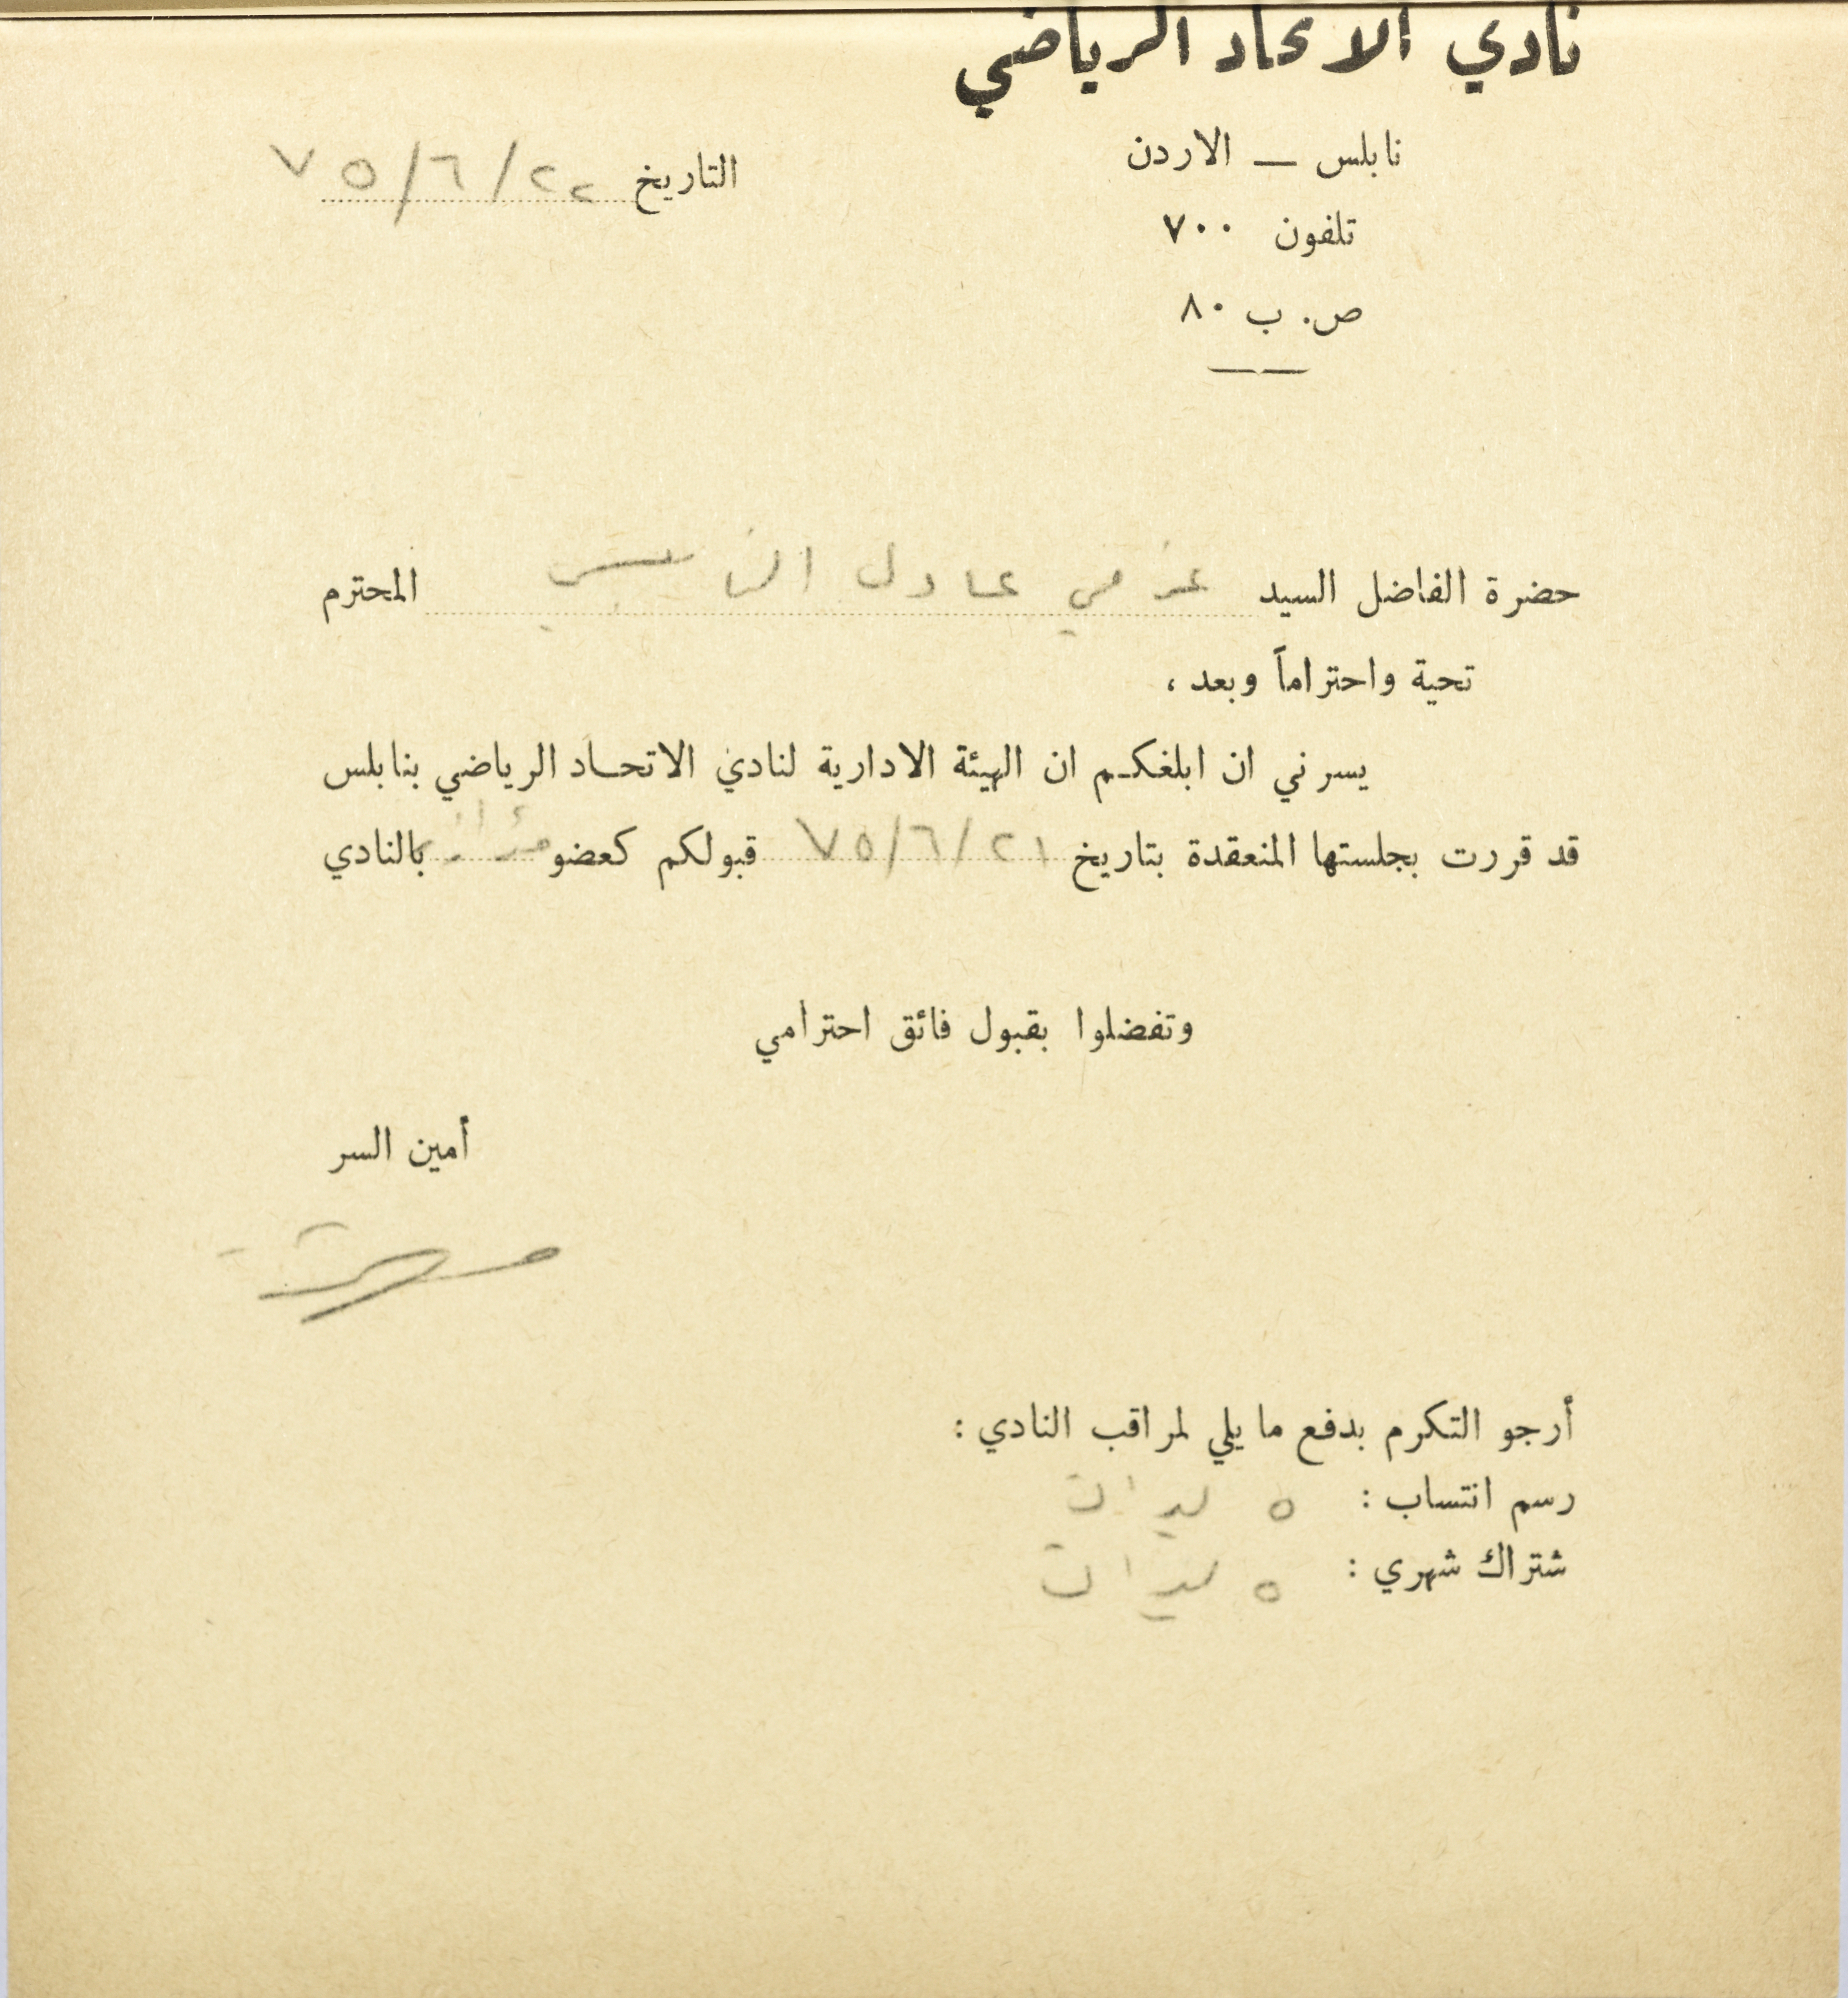 نادي الاتحاد الرياضي
نابلس — الاردن
التاريخ ٧٥/٦/٢٢
تلفون ٧٠٠
ص. ب ٨٠
حضرة الفاضل السيد عزمي عادل المحترم
تحية واحتراماً وبعد ،
يسرني ان ابلغكم ان الهيئة الادارية لنادي الاتحاد الرياضي بنابلس
قد قررت بجلستها المنعقدة بتاريخ ٧٥/٦/٢١ قبولكم كعضو مؤازر بالنادي
وتفضلوا بقبول فائق احترامي
أمين السر
أرجو التكرم بدفع ما يلي لمراقب النادي :
رسم انتساب : ٥ ليرات
شتراك شهري : ٥ ليرات